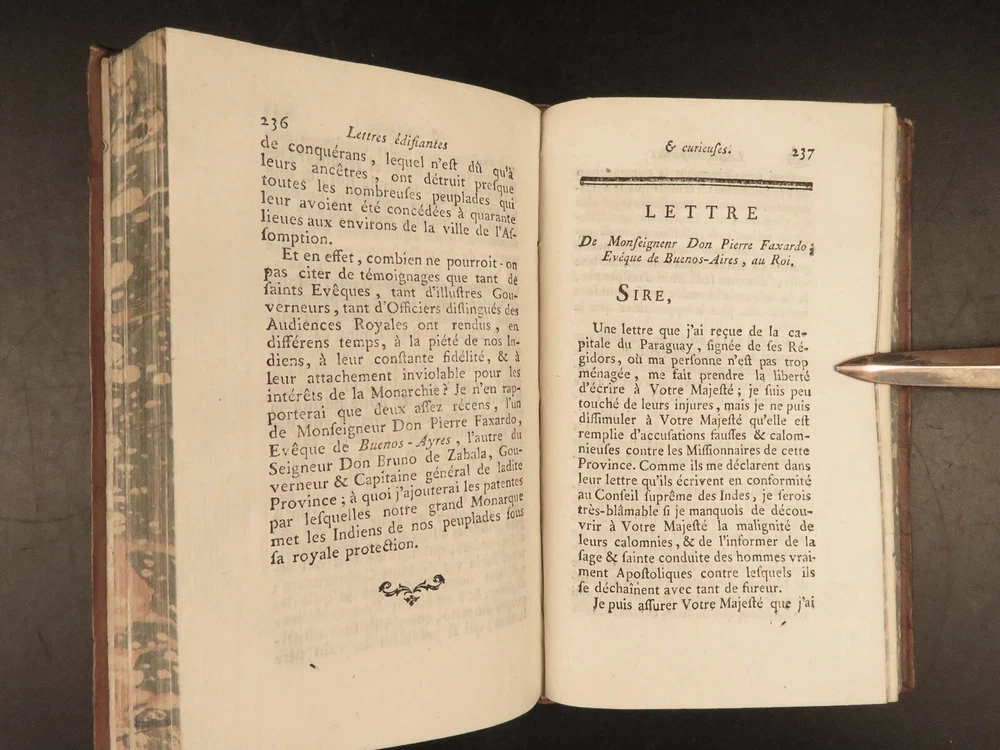 236
Lettres édifiantes
de conquérans, lequel n'eſt dû qu'à
leurs ancêtres, ont détruit preſque
toutes les nombreuſes peuplades qui
leur avoient été concédées à quarante
lieues aux environs de la ville de l'Aſ-
ſomption.
Et en effet, combien ne pourroit-on
pas citer de témoignages que tant de
ſaints Evêques, tant d'illuſtres Gou-
verneurs, tant d'Officiers diſtingués des
Audiences Royales ont rendus, en
différens temps, à la piété de nos In-
diens, à leur conſtante fidélité, & à
leur attachement inviolable pour les
intérêts de la Monarchie? Je n'en rap-
porterai que deux aſſez récens, l'un
de Monſeigneur Don Pierre Faxardo,
Evêque de Buenos-Ayres, l'autre du
Seigneur Don Bruno de Zabala, Gou-
verneur & Capitaine général de ladite
Province; à quoi j'ajouterai les patentes
par leſquelles notre grand Monarque
met les Indiens de nos peuplades ſous
ſa royale protection.
& curieuſes.
237
LETTRE
De Monſeigneur Don Pierre Faxardo;
Evêque de Buenos-Aires, au Roi.
SIRE,
Une lettre que j'ai reçue de la ca-
pitale du Paraguay, ſignée de ſes Ré-
gidors, où ma perſonne n'eſt pas trop
ménagée, me fait prendre la liberté
d'écrire à Votre Majeſté; je ſuis peu
touché de leurs injures, mais je ne puis
diſſimuler à Votre Majeſté qu'elle eſt
remplie d'accuſations fauſſes & calom-
nieuſes contre les Miſſionnaires de cette
Province. Comme ils me déclarent dans
leur lettre qu'ils écrivent en conformité
au Conſeil ſuprême des Indes, je ſerois
très-blâmable ſi je manquois de décou-
vrir à Votre Majeſté la malignité de
leurs calomnies, & de l'informer de la
ſage & ſainte conduite des hommes vrai-
ment Apoſtoliques contre leſquels ils
ſe déchaînent avec tant de fureur.
Je puis aſſurer Votre Majeſté que j'ai